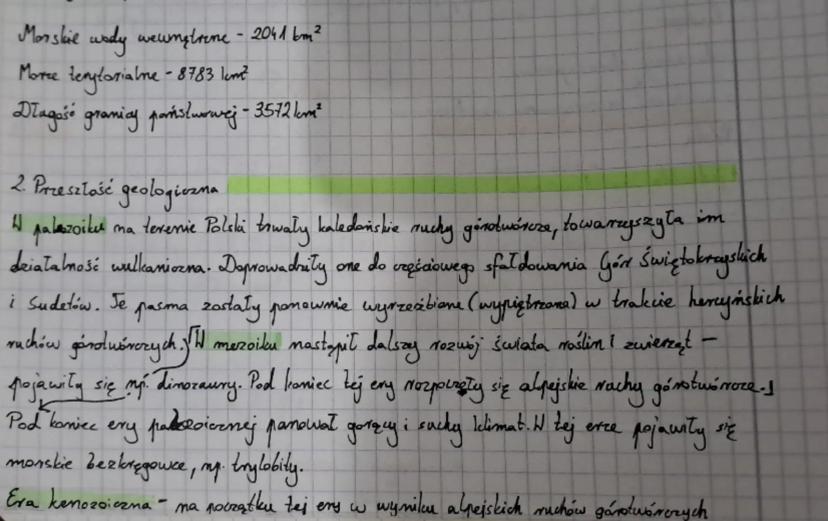 Morskie wody wewnętrzne - 2041 km²
Morze terytorialne - 8783 km²
Długość granicy państwowej - 3572 km²
2. Przeszłość geologiczna
W paleozoiku na terenie Polski trwały kaledońskie ruchy górotwórcze, towarzyszyła im
działalność wulkaniczna. Doprowadziły one do częściowego sfałdowania Gór Świętokrzyskich
i Sudetów. Te pasma zostały ponownie wyrzeźbione (wypiętrzone) w trakcie hercyńskich
ruchów górotwórczych. W mezoiku nastąpił dalszy rozwój świata roślin i zwierząt -
pojawiły się np. dinozaury. Pod koniec tej ery rozpoczęły się alpejskie ruchy górotwórcze.
Pod koniec ery paleozoicznej panował gorący i suchy klimat. W tej erze pojawiły się
morskie bezkręgowce, np. trylobity.
Era kenozoiczna - na początku tej ery w wyniku alpejskich ruchów górotwórczych